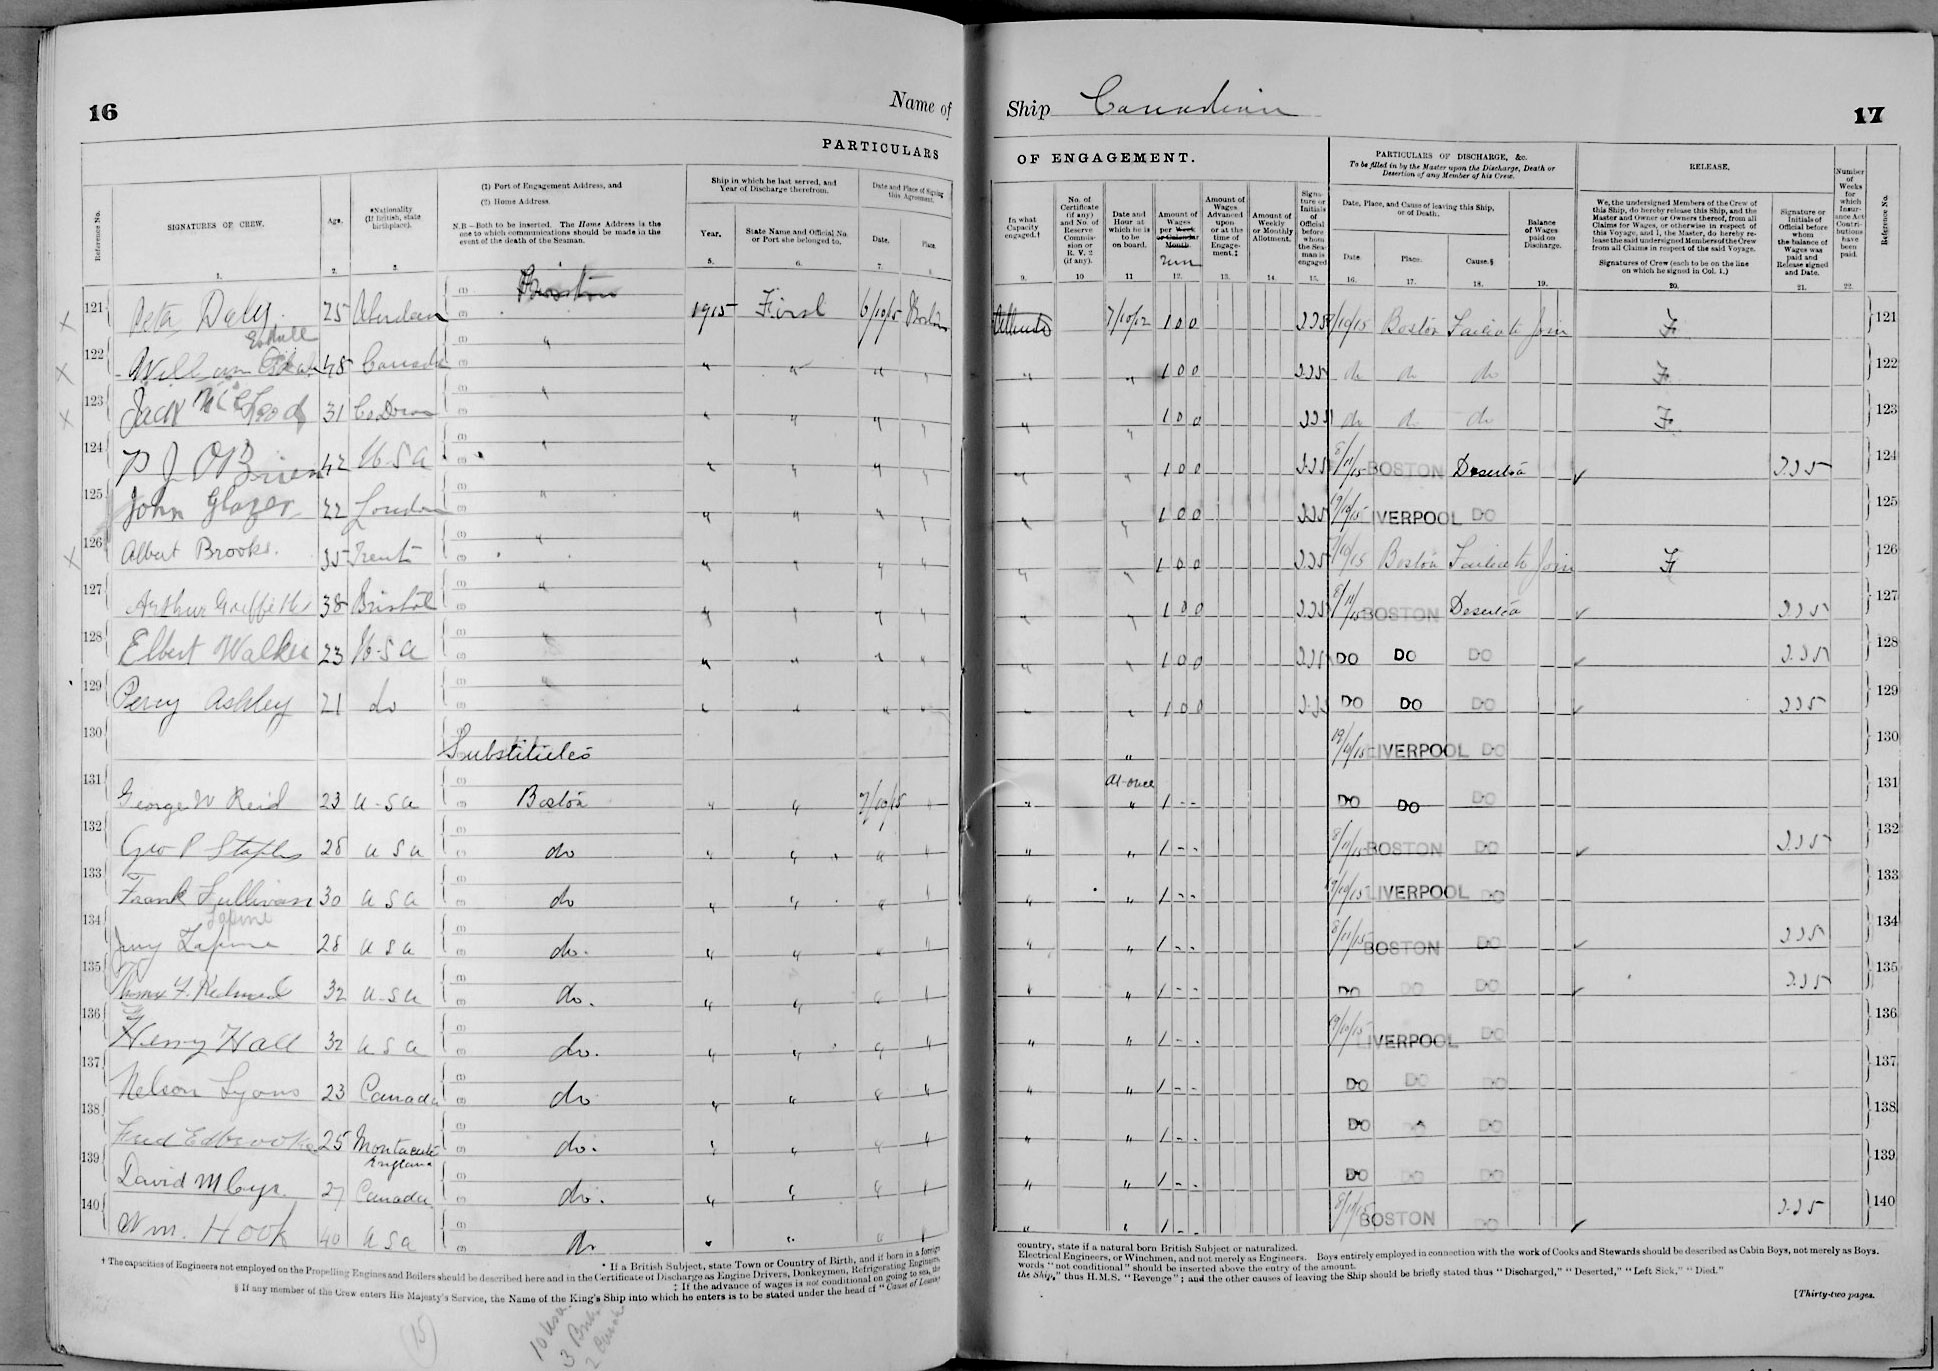 16
Name of
PARTICULARS
Reference No.
SIGNATURES OF CREW.
Age.
*Nationality (If British, state birthplace).
(1) Port of Engagement Address, and
(2) Home Address.
N.B—Both to be inserted. The Home Address is the one to which communications should be made in the event of the death of the Seaman.
Ship in which he last served, and Year of Discharge therefrom.
Year.
State Name and Official No. or Port she belonged to.
Date and Place of Signing this Agreement.
Date.
Place.
1. 2. 3. 4 5. 6. 7. 8.
121 Peter Daly. 25 Aberdeen Boston 1915 First 6/10/15 Boston
122 William 48 Canada " " " " "
123 Jack McLeod 31 Co Down " " " " "
124 P J O'Brien 42 U-S A " " " " "
125 John Glazer 22 London " " " " "
126 Albert Brooks. 35 Trent " " " " "
127 Arthur Griffiths 38 Bristol " " " " "
128 Elbert Walker 23 U-S A " " " " "
129 Percy Ashley 21 do " " " " "
130 Substitutes
131 George W Reid 23 U-S A Boston " " 7/10/15 "
132 Geo P Staples 28 U S A do " " " "
133 Frank Sullivan 30 U S A do " " " "
134 28 U S A do. " " " "
135 32 U-S A do. " " " "
136 Henry Hall 32 U S A do. " " " "
137 Nelson Lyons 23 Canada do " " " "
138 Fred Edbrooke 25 Montacute England do. " " " "
139 David M Cyr. 27 Canada do. " " " "
140 Wm. Hook 40 U S A do " " " "
* If a British Subject, state Town or Country of Birth, and if born in a foreign
† The capacities of Engineers not employed on the Propelling Engines and Boilers should be described here and in the Certificate of Discharge as Engine Drivers, Donkeymen, Refrigerating Engineers,
‡ If the advance of wages is not conditional on going to sea, the
§ If any member of the Crew enters His Majesty's Service, the Name of the King's Ship into which he enters is to be stated under the head of "Cause of Leaving
(15)
10 USA.
Ship Canadian
17
OF ENGAGEMENT.
PARTICULARS OF DISCHARGE, &c.
To be filled in by the Master upon the Discharge, Death or Desertion of any Member of his Crew.
RELEASE.
In what Capacity engaged.†
No. of Certificate (if any) and No. of Reserve Commission or R. V. 2 (if any).
Date and Hour at which he is to be on board.
Amount of Wages per Week or Calendar Month.
run
Amount of Wages Advanced upon or at the time of Engagement.‡
Amount of Weekly or Monthly Allotment.
Signature or Initials of Official before whom the Seaman is engaged
Date, Place, and Cause of leaving this Ship, or of Death.
Date.
Place.
Cause.§
Balance of Wages paid on Discharge.
We, the undersigned Members of the Crew of this Ship, do hereby release this Ship, and the Master and Owner or Owners thereof, from all Claims for Wages, or otherwise in respect of this Voyage, and I, the Master, do hereby release the said undersigned Members of the Crew from all Claims in respect of the said Voyage.
Signatures of Crew (each to be on the line on which he signed in Col. 1.)
Signature or Initials of Official before whom the balance of Wages was paid and Release signed and Date.
Number of Weeks for which Insurance Act Contributions have been paid.
Reference No.
9. 10 11 12. 13. 14. 15. 16. 17. 18. 19. 20. 21. 22.
7/10/12 1 0 0 7/10/15 Boston Failed to Join 121
" " 1 0 0 do do do 122
" " 1 0 0 do do do 123
" " 1 0 0 8/11/15 BOSTON Deserted 124
" " 1 0 0 19/10/15 LIVERPOOL DO 125
" " 1 0 0 7/10/15 Boston Failed to Join 126
" " 1 0 0 8/11/15 BOSTON Deserted 127
" " 1 0 0 DO DO DO 128
" " 1 0 0 DO DO DO 129
" 19/10/15 LIVERPOOL DO 130
At-once
" " 1 - - DO DO DO 131
" " 1 - - 8/11/15 BOSTON DO 132
" " 1 - - 19/10/15 LIVERPOOL DO 133
" " 1 - - 8/11/15 BOSTON DO 134
" " 1 - - DO DO DO 135
" " 1 - - 19/10/15 LIVERPOOL DO 136
" " 1 - - DO DO DO 137
" " 1 - - DO DO 138
" " 1 - - DO DO DO 139
" " 1 - - BOSTON DO 140
country, state if a natural born British Subject or naturalized.
Electrical Engineers, or Winchmen, and not merely as Engineers. Boys entirely employed in connection with the work of Cooks and Stewards should be described as Cabin Boys, not merely as Boys.
words "not conditional" should be inserted above the entry of the amount.
the Ship," thus H.M.S. "Revenge"; and the other causes of leaving the Ship should be briefly stated thus "Discharged," "Deserted," "Left Sick," "Died."
[Thirty-two pages.